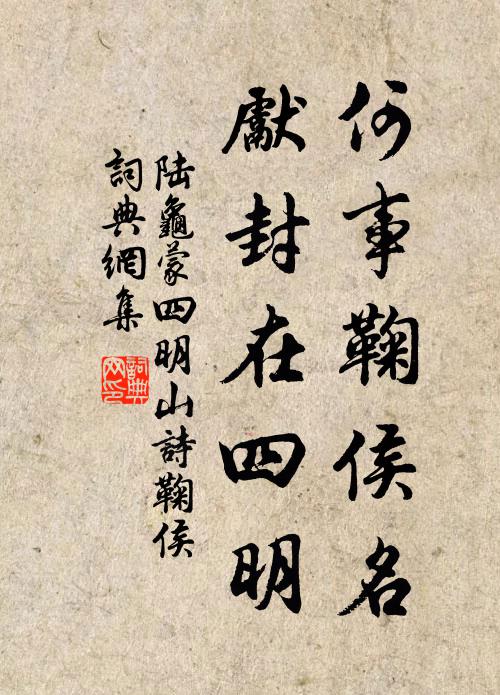 何事鞠侯名
獻封在四明
陆龜蒙四明山詩鞠侯
詞典網集
詞典網印